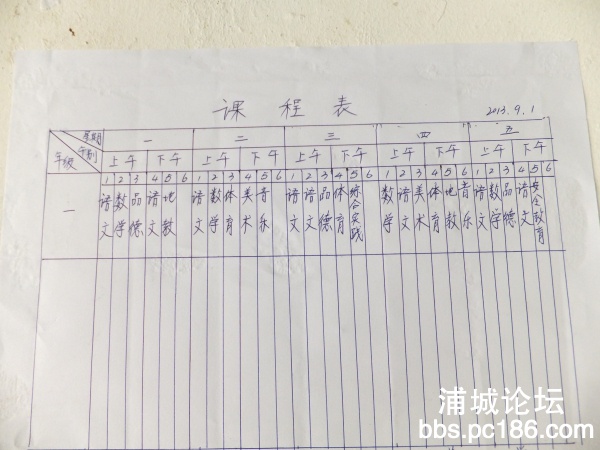 课 程 表
2013.9.1
星期 一 二 三 四 五
午别 上午 下午 上午 下午 上午 下午 上午 下午 上午 下午
年级 1 2 3 4 5 6 1 2 3 4 5 6 1 2 3 4 5 6 1 2 3 4 5 6 1 2 3 4 5 6
一 语文 数学 品德 语文 地教 语文 数学 体育 美术 音乐 语文 语文 品德 体育 综合实践 数学 语文 美术 体育 地教 音乐 语文 数学 品德 语文 安全教育
浦城论坛
bbs.pc186.com